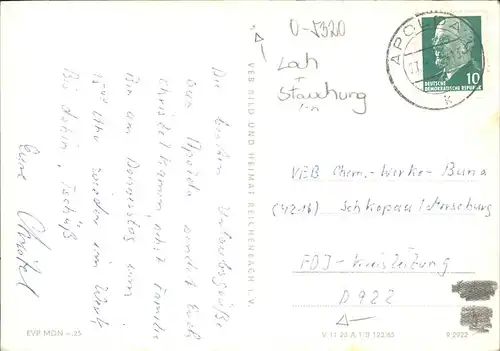 Die besten Urlaubsgrüße
aus Apolda sendet Euch
Christel Kamm, nebst Familie
Bin am Donnerstag um
wieder im Werk
Bis dahin, Tschüß
Eure Christel
VEB BILD UND HEIMAT REICHENBACH I. V.
0-5320
Lah
+
Stauchung
APOLDA
k
DEUTSCHE
DEMOKRATISCHE REPUBLIK
10
VEB Chem.-Werke-Buna
(4216) Schkopau/Merseburg
FDJ-Kreisleitung
D922
EVP MDN -.25
V 11 28 A 1/B 123/65
9-2922